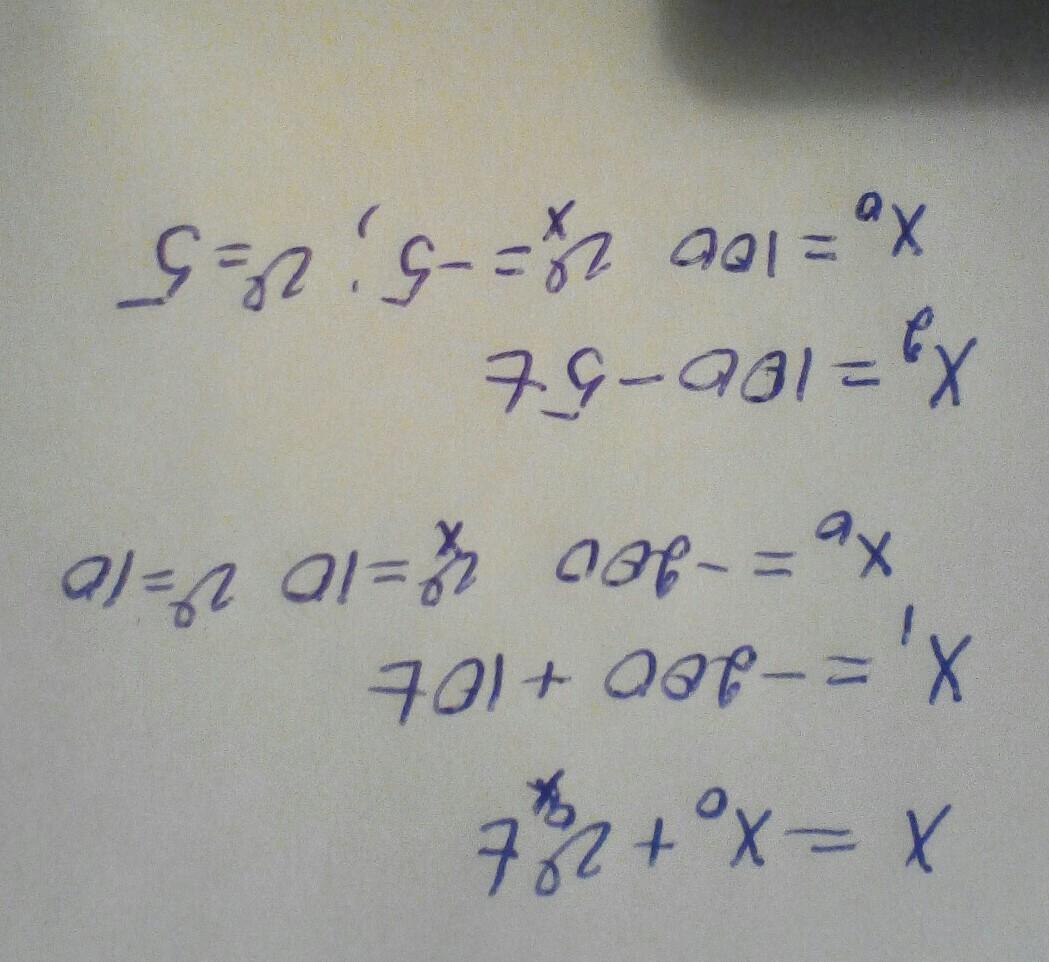 X = X₀ + υₓt
X₁ = -200 + 10t
X₀ = -200 υₓ = 10 υ = 10
X₂ = 100 - 5t
X₀ = 100 υₓ = -5; υ = 5